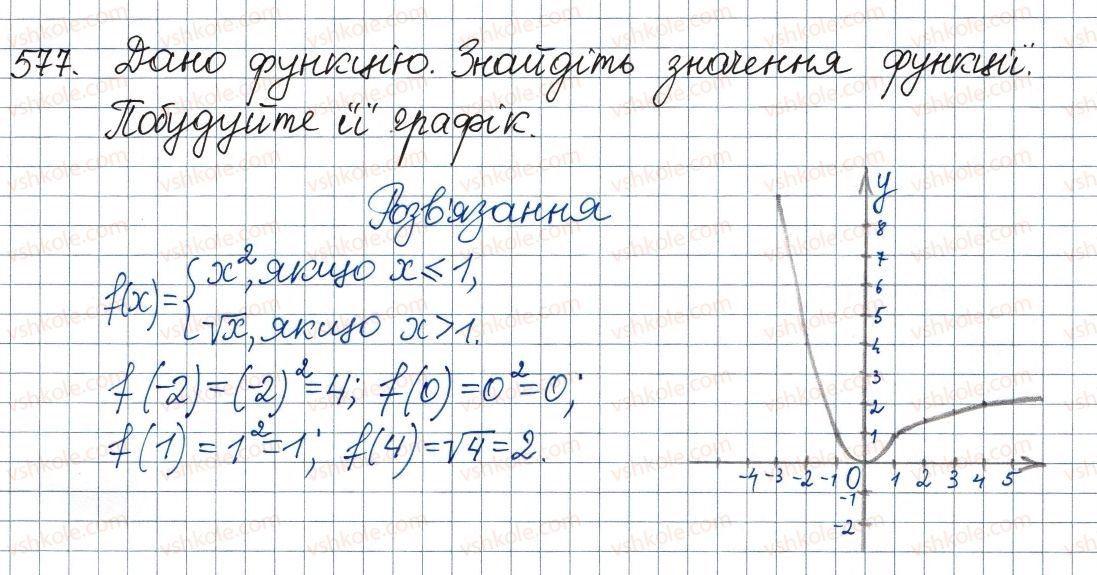 577. Дано функцію. Знайдіть значення функції.
Побудуйте її графік.
Розв'язання
f(x) = { x², якщо x ≤ 1,
√x, якщо x > 1.
f(-2) = (-2)² = 4; f(0) = 0² = 0;
f(1) = 1² = 1; f(4) = √4 = 2.
y
8
7
6
5
4
3
2
1
-4 -3 -2 -1 0 1 2 3 4 5
-1
-2
vshkole.com